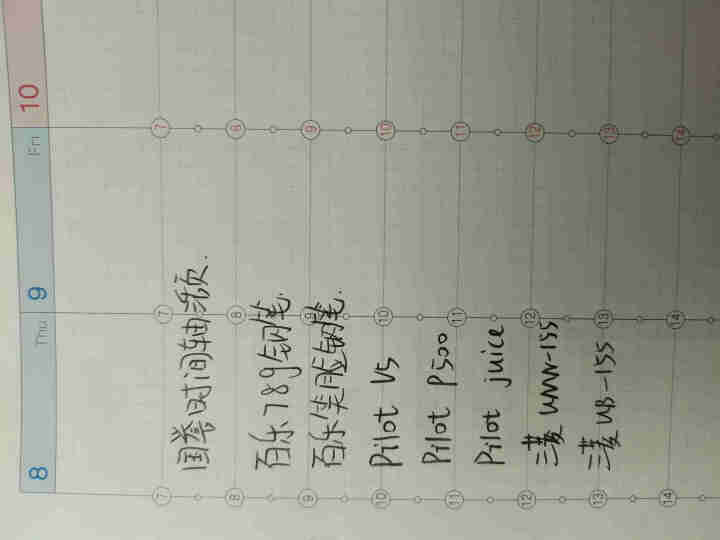 8
Thu
9
Fri
10
7 8 9 10 11 12 13 14
7 8 9 10 11 12 13 14
7 8 9 10 11 12 13 14
国誉时间轴活页.
百乐78g钢笔.
百乐笑脸钢笔.
Pilot V5
Pilot P500
Pilot juice
三菱 UMN-155
三菱 UB-155